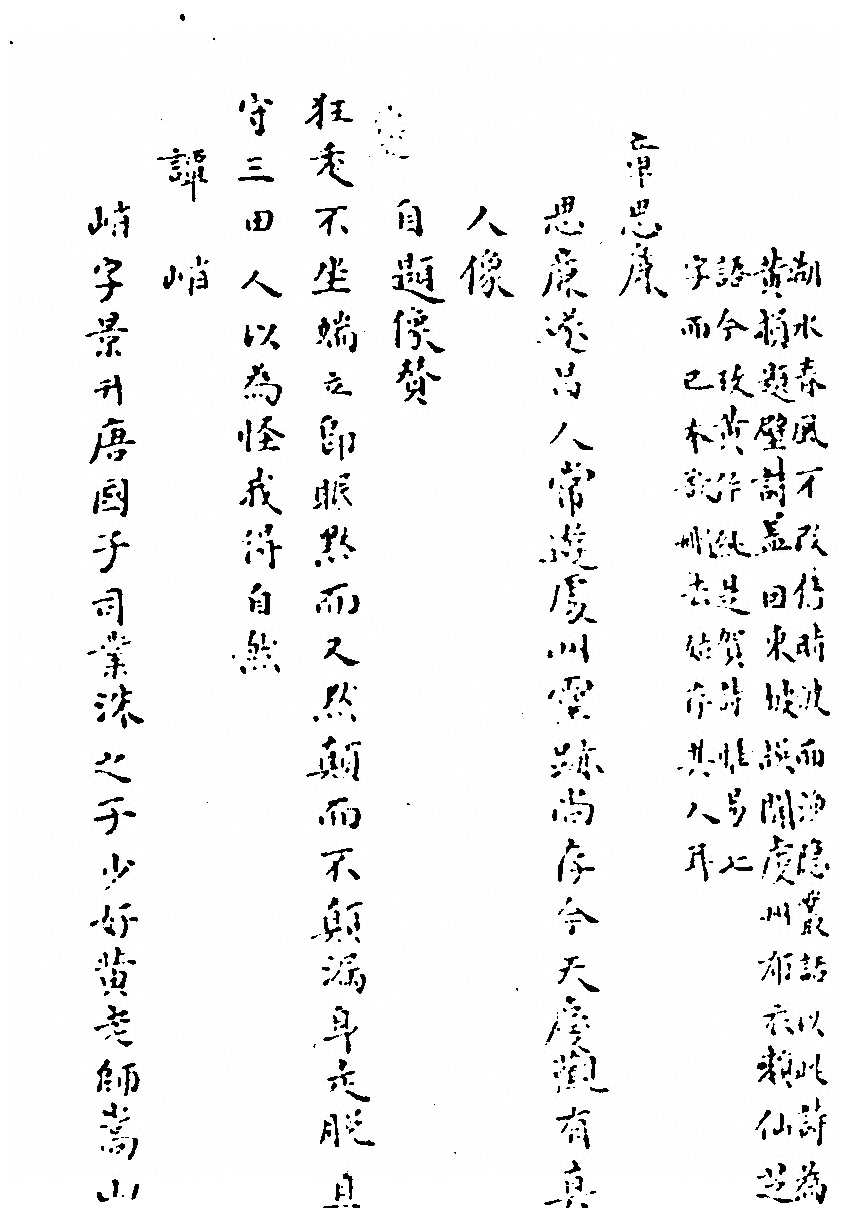 湖水春風不改舊時波而漁隱叢話以此詩為
黃損題壁詩蓋因東坡誤聞虔州布衣賴仙芝
語今攷黃作純是賀詩惟易七
字而已本欲刪去姑存其人耳
章思廉
思廉遂昌人常遊處州靈跡尚存今天慶觀有真
人像
自題像贊
狂走不坐端立即眠默而又然顛而不顛漏身走脫且
守三田人以為怪我得自然
譚峭
峭字景升唐國子司業洙之子少好黃老師嵩山